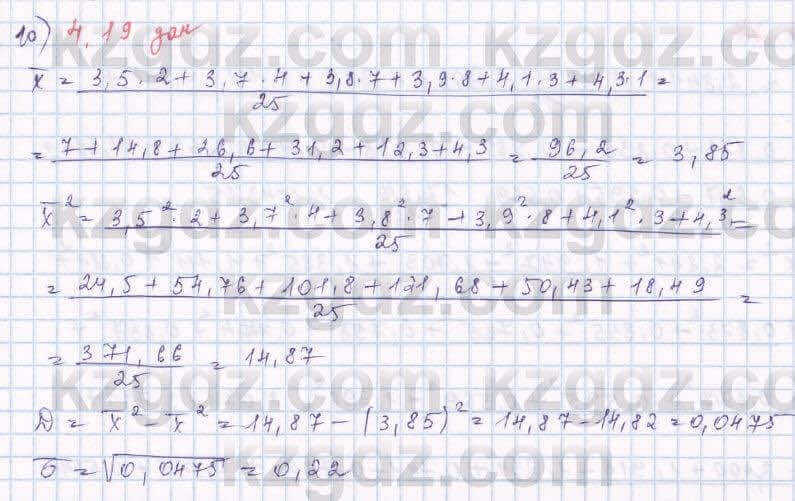 10) 4.19 дан
x̄ = (3,5·2 + 3,7·4 + 3,8·7 + 3,9·8 + 4,1·3 + 4,3·1)/25 =
= (7 + 14,8 + 26,6 + 31,2 + 12,3 + 4,3)/25 = 96,2/25 = 3,85
x̄² = (3,5²·2 + 3,7²·4 + 3,8²·7 + 3,9²·8 + 4,1²·3 + 4,3²)/25 =
= (24,5 + 54,76 + 101,8 + 121,68 + 50,43 + 18,49)/25 =
= 371,66/25 = 14,87
D = x̄² - x̄² = 14,87 - (3,85)² = 14,87 - 14,82 = 0,0475
σ = √0,0475 = 0,22
kzgdz.com